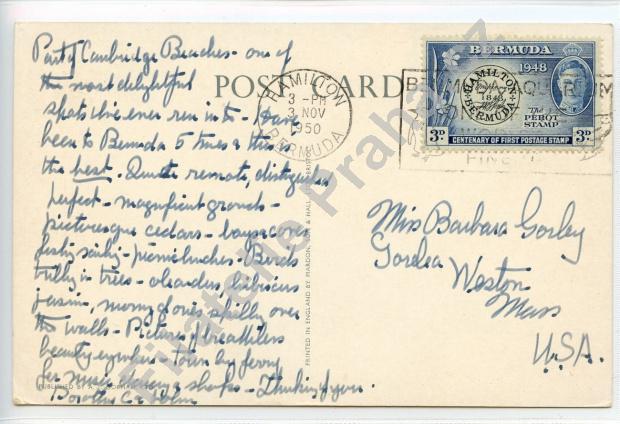 Part of Cambridge Beaches - one of
the most delightful
spots I've ever run into - Have
been to Bermuda 5 times & this is
the best. Quite remote, distinguished
perfect - magnificent grounds -
picturesque cedars - bays coves
picnic lunches - Birds
trilly in trees - oleanders, hibiscus
jasmin, morning glories spilly over
the walls - Pictures of breathless
beauty everywhere - town by ferry
for shops - Thinking of you.
Dorothy
POST CARD
HAMILTON
3 - PM
3 NOV
1950
BERMUDA
BERMUDA
1948
HAMILTON
1848
BERMUDA
The
PEROT
STAMP
3D 3D
CENTENARY OF FIRST POSTAGE STAMP
Miss Barbara Gorley
Weston
Mass
U.S.A.
PRINTED IN ENGLAND BY MARDON, SON & HALL
PUBLISHED BY
Filatelie Praha